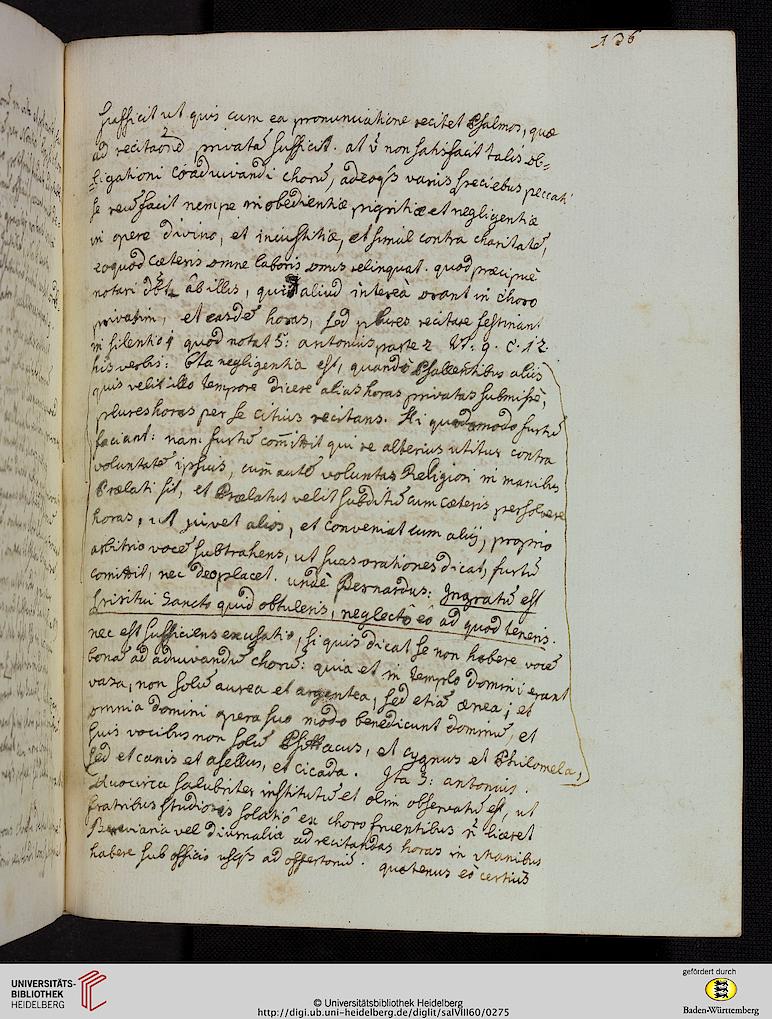 136
Sufficit ut quis cum ea pronunciatione recitet Psalmos, quæ
ad recitaõed privatã sufficit. at v̄ non satisfacit talis ob=
=ligationi coadiuvandi chorũ, adeoq͛ variis speciebus peccati
se reũ facit nempe inobedientiæ pigritiæ et negligentiæ
in opere divino, et iniustitiæ, et simul contra charitatẽ,
eoquod cæteris omne laboris onus relinquat. quod præcipuè
notari dẽt ab illis, qui aliud intereà orant in choro
privatim, et easdẽ horas, sed plures recitare festinant
in silentio; quod notat S: antonius parte 2 tit. 9. c. 12.
his verbis: Ista negligentia est, quandò Psallentibus aliis
quis velit illo tempore dicere alias horas privatas submissè,
plures horas per se citius recitans. Hi quodammodo furtũ
faciant: nam furtũ com̃ittit qui re alterius utitur contra
voluntatẽ ipsius, cum autẽ voluntas Religiosi in manibus
Prælati sit, et Prælatus velit subditũ cum cæteris persolvere
horas, ut iuvet alios, et conveniat cum aliis, proprio
arbitrio vocẽ subtrahens, ut suas orationes dicat, furtũ
comittit, nec Deo placet. undè Bernardus: Ingratũ est
Spiritui Sancto quid obtuleris, neglectô eô ad quod teneris.
nec est sufficiens excusatio, si quis dicat se non habere vocẽ
bonã ad adiuvandũ chorũ: quia et in templo Domini erant
vasa, non solũ aurea et argentea, sed etiã ænea; et
omnia Domini opera suo modo benedicunt dominũ, et
suis vocibus non solũ Psittacus, et cygnus et Philomela,
sed et canis et asellus, et cicada. Ita S: antonius.
Quocirca salubriter institutũ et olim observatũ est, ut
fratribus studiosis solatiô ex choro fruentibus n̄ liceret
Breviaria vel diurnalia ad recitandas horas in manibus
habere sub officio usq͛ ad offertoriũ. quatenus eò certius
UNIVERSITÄTS-
BIBLIOTHEK
HEIDELBERG
© Universitätsbibliothek Heidelberg
http://digi.ub.uni-heidelberg.de/diglit/salVIII60/0275
gefördert durch
Baden-Württemberg